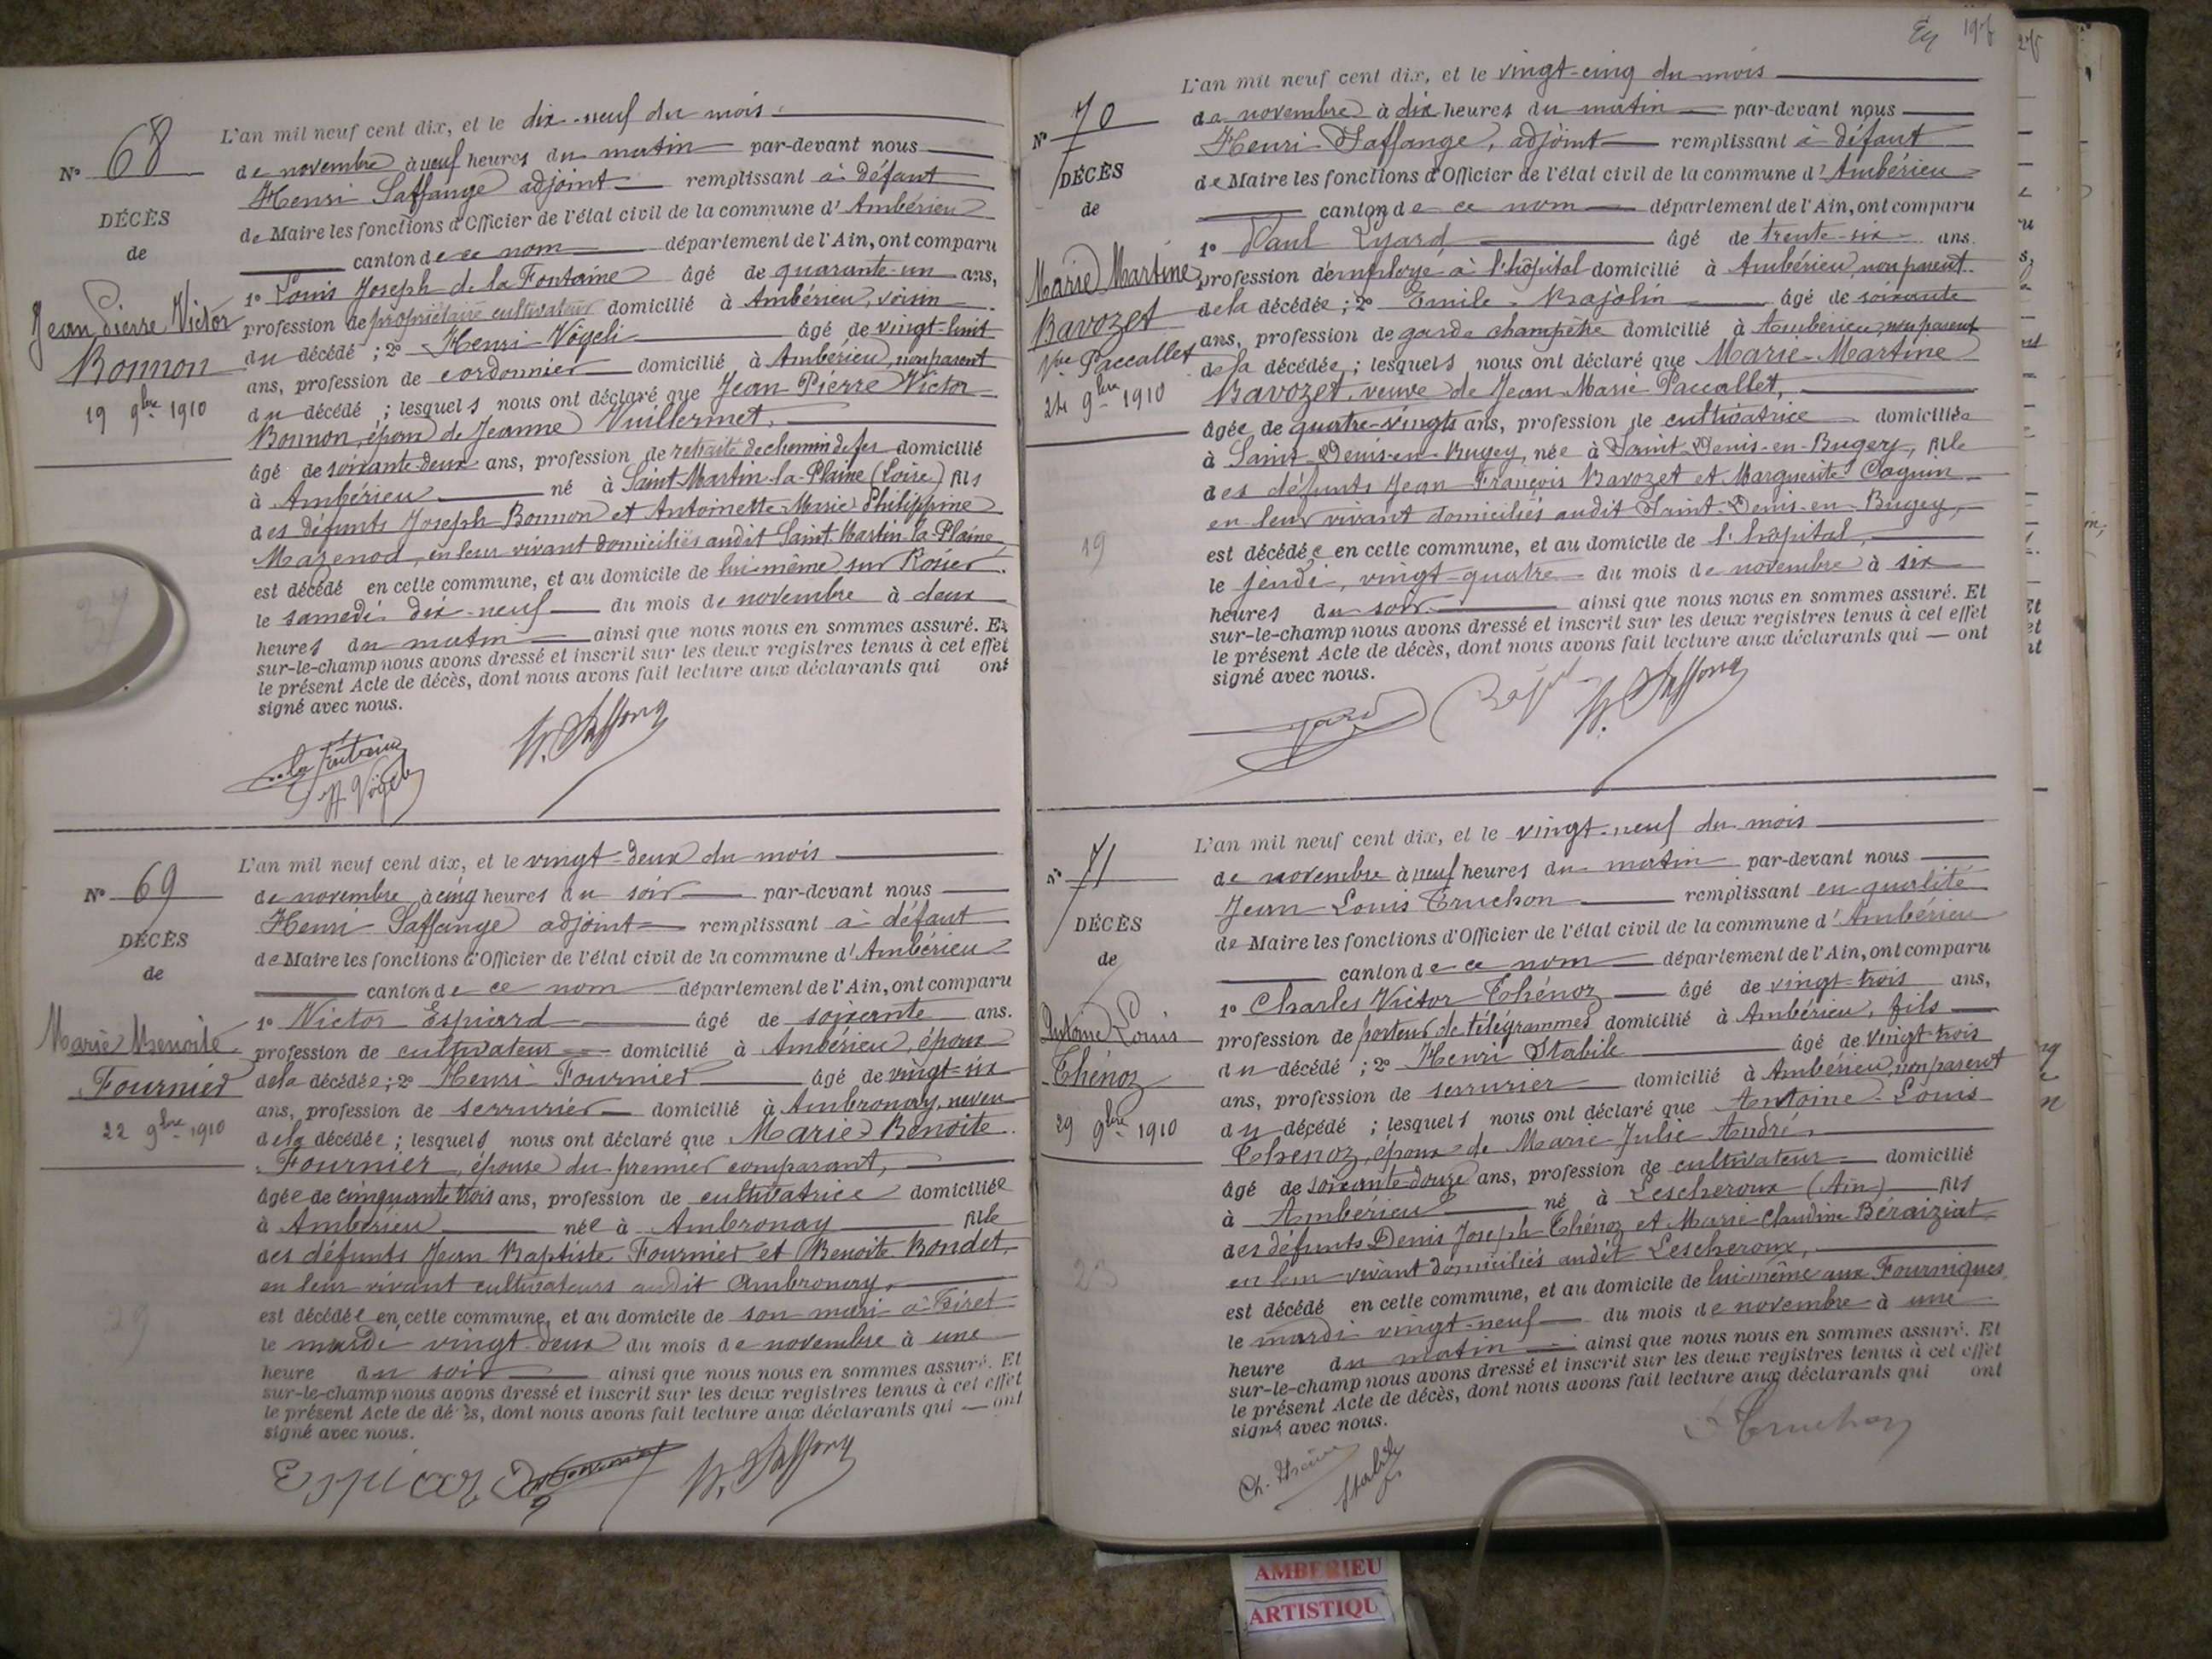 Nº 68
DÉCÈS
de
Jean Pierre Victor
Bonnon
19 9bre 1910
L'an mil neuf cent dix, et le dix-neuf du mois
de novembre à neuf heures du matin par-devant nous
Henri Saffange adjoint remplissant à défaut
de Maire les fonctions d'Officier de l'état civil de la commune d'Ambérieu
canton de ce nom département de l'Ain, ont comparu
1º Louis Joseph de la Fontaine âgé de quarante-un ans,
profession de propriétaire cultivateur domicilié à Ambérieu, voisin
du décédé ; 2º Henri Vögeli âgé de vingt-huit
ans, profession de cordonnier domicilié à Ambérieu, non parent
du décédé ; lesquels nous ont déclaré que Jean Pierre Victor
Bonnon, époux de Jeanne Vuillermet,
âgé de soixante-deux ans, profession de retraité de chemin de fer domicilié
à Ambérieu né à Saint-Martin-la-Plaine (Loire) fils
des défunts Joseph Bonnon et Antoinette Marie Philippine
Mazenod, en leur vivant domiciliés audit Saint-Martin-la-Plaine
est décédé en cette commune, et au domicile de lui-même sur
le samedi dix-neuf du mois de novembre à deux
heures du matin ainsi que nous nous en sommes assuré. Et
sur-le-champ nous avons dressé et inscrit sur les deux registres tenus à cet effet
le présent Acte de décès, dont nous avons fait lecture aux déclarants qui ont
signé avec nous.
H. Vögeli
Nº 69
DÉCÈS
de
Marie Benoite
Fournier
22 9bre 1910
L'an mil neuf cent dix, et le vingt-deux du mois
de novembre à cinq heures du soir par-devant nous
Henri Saffange adjoint remplissant à défaut
de Maire les fonctions d'Officier de l'état civil de la commune d'Ambérieu
canton de ce nom département de l'Ain, ont comparu
1º Victor Espiard âgé de soixante ans.
profession de cultivateur domicilié à Ambérieu, époux
de la décédée ; 2º Henri Fournier âgé de vingt-six
ans, profession de serrurier domicilié à Ambronay, neveu
de la décédée ; lesquels nous ont déclaré que Marie Benoite
Fournier, épouse du premier comparant,
âgée de cinquante trois ans, profession de cultivatrice domiciliée
à Ambérieu née à Ambronay fille
des défunts Jean Baptiste Fournier et Benoite Bondet,
en leur vivant cultivateurs audit Ambronay,
est décédée en cette commune, et au domicile de son mari à Tiret
le mardi vingt-deux du mois de novembre à une
heure du soir ainsi que nous nous en sommes assuré. Et
sur-le-champ nous avons dressé et inscrit sur les deux registres tenus à cet effet
le présent Acte de décès, dont nous avons fait lecture aux déclarants qui — ont
signé avec nous.
Nº 70
DÉCÈS
de
Marie Martine
Bavozet
Vve Paccallet
24 9bre 1910
L'an mil neuf cent dix, et le vingt-cinq du mois
de novembre à dix heures du matin par-devant nous
Henri Saffange, adjoint remplissant à défaut
de Maire les fonctions d'Officier de l'état civil de la commune d'Ambérieu
canton de ce nom département de l'Ain, ont comparu
1º Paul Lyard âgé de trente-six ans.
profession d'employé à l'hôpital domicilié à Ambérieu, non parent
de la décédée ; 2º Emile Bajolin âgé de soixante
ans, profession de garde champêtre domicilié à Ambérieu non parent
de la décédée ; lesquels nous ont déclaré que Marie-Martine
Bavozet, veuve de Jean-Marie Paccallet,
âgée de quatre-vingts ans, profession de cultivatrice domiciliée
à Saint-Denis-en-Bugey, née à Saint-Denis-en-Bugey, fille
des défunts Jean François Bavozet et Marguerite Coquin
en leur vivant domiciliés audit Saint-Denis-en-Bugey,
est décédée en cette commune, et au domicile de l'hôpital,
le jeudi, vingt-quatre du mois de novembre à six
heures du soir ainsi que nous nous en sommes assuré. Et
sur-le-champ nous avons dressé et inscrit sur les deux registres tenus à cet effet
le présent Acte de décès, dont nous avons fait lecture aux déclarants qui — ont
signé avec nous.
Nº 71
DÉCÈS
de
Antoine Louis
Thénoz
29 9bre 1910
L'an mil neuf cent dix, et le vingt-neuf du mois
de novembre à neuf heures du matin par-devant nous
Jean Louis Truchon remplissant en qualité
de Maire les fonctions d'Officier de l'état civil de la commune d'Ambérieu
canton de ce nom département de l'Ain, ont comparu
1º Charles Victor Thénoz âgé de vingt-trois ans,
profession de porteur de télégrammes domicilié à Ambérieu, fils
du décédé ; 2º Henri Stabile âgé de vingt-trois
ans, profession de serrurier domicilié à Ambérieu, non parent
du décédé ; lesquels nous ont déclaré que Antoine Louis
Thénoz, époux de Marie Julie André,
âgé de soixante-douze ans, profession de cultivateur domicilié
à Ambérieu né à Lescheroux (Ain) fils
des défunts Denis Joseph Thénoz et Marie Claudine Béraiziat
en leur vivant domiciliés audit Lescheroux,
est décédé en cette commune, et au domicile de lui-même aux Fourniques,
le mardi vingt-neuf du mois de novembre à une
heure du matin ainsi que nous nous en sommes assuré. Et
sur-le-champ nous avons dressé et inscrit sur les deux registres tenus à cet effet
le présent Acte de décès, dont nous avons fait lecture aux déclarants qui ont
signé avec nous.
Truchon
Stabile
AMBERIEU
ARTISTIQU